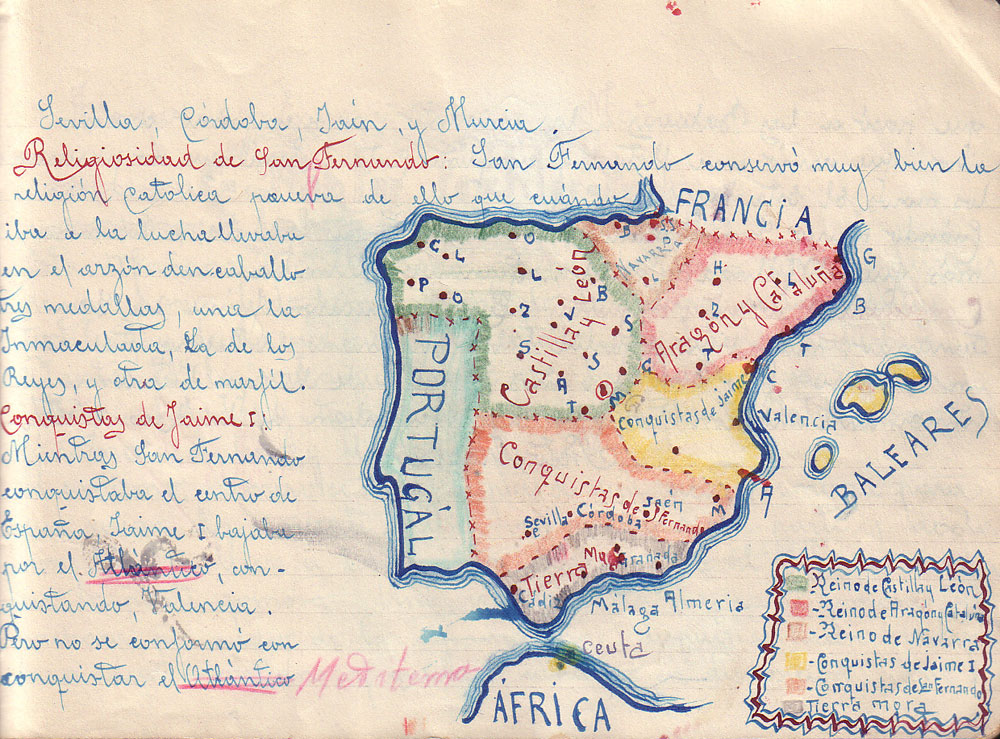 Sevilla, Córdoba, Jaén, y Murcia.
Religiosidad de San Fernando: San Fernando conservó muy bien la
religión Católica prueva de ello que cuándo
iba a la lucha llevaba
en el arzón den caballo
tres medallas, una la
Inmaculada, La de los
Reyes, y otra de marfil.
Conquistas de Jaime I:
Mientras San Fernando
conquistaba el centro de
España, Jaime I bajaba
por el Atlantico, con-
quistando, Valencia.
Pero no se conformó con
conquistar el Atlántico Mediterra
FRANCIA
NAVARRA
Castilla y León
Aragón y Cataluña
PORTUGÁL
Conquistas de Jaime I
Valencia
BALEARES
Conquistas de S. Fernando
Sevilla
Córdoba
Jaén
Granada
Tierra Mo
Cádiz
Málaga
Almeria
ceuta
ÁFRICA
G
L
P
O
O
L
B
Z
V
S
S
S
A
T
M
G
B
SS
P
L
H
Z
T
L
G
B
T
C
A
M
Reino de Castilla y León
-Reino de Aragón y Cataluña
-Reino de Navarra
-Conquistas de Jaime I.
-Conquistas de San Fernando
Tierra mora